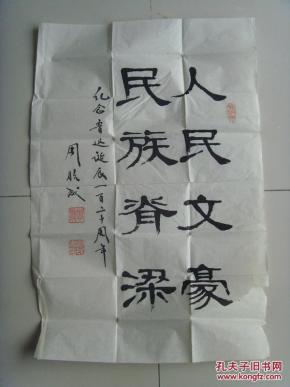 人民文豪
民族脊梁
纪念鲁迅诞辰一百二十周年
周晓
孔夫子旧书网